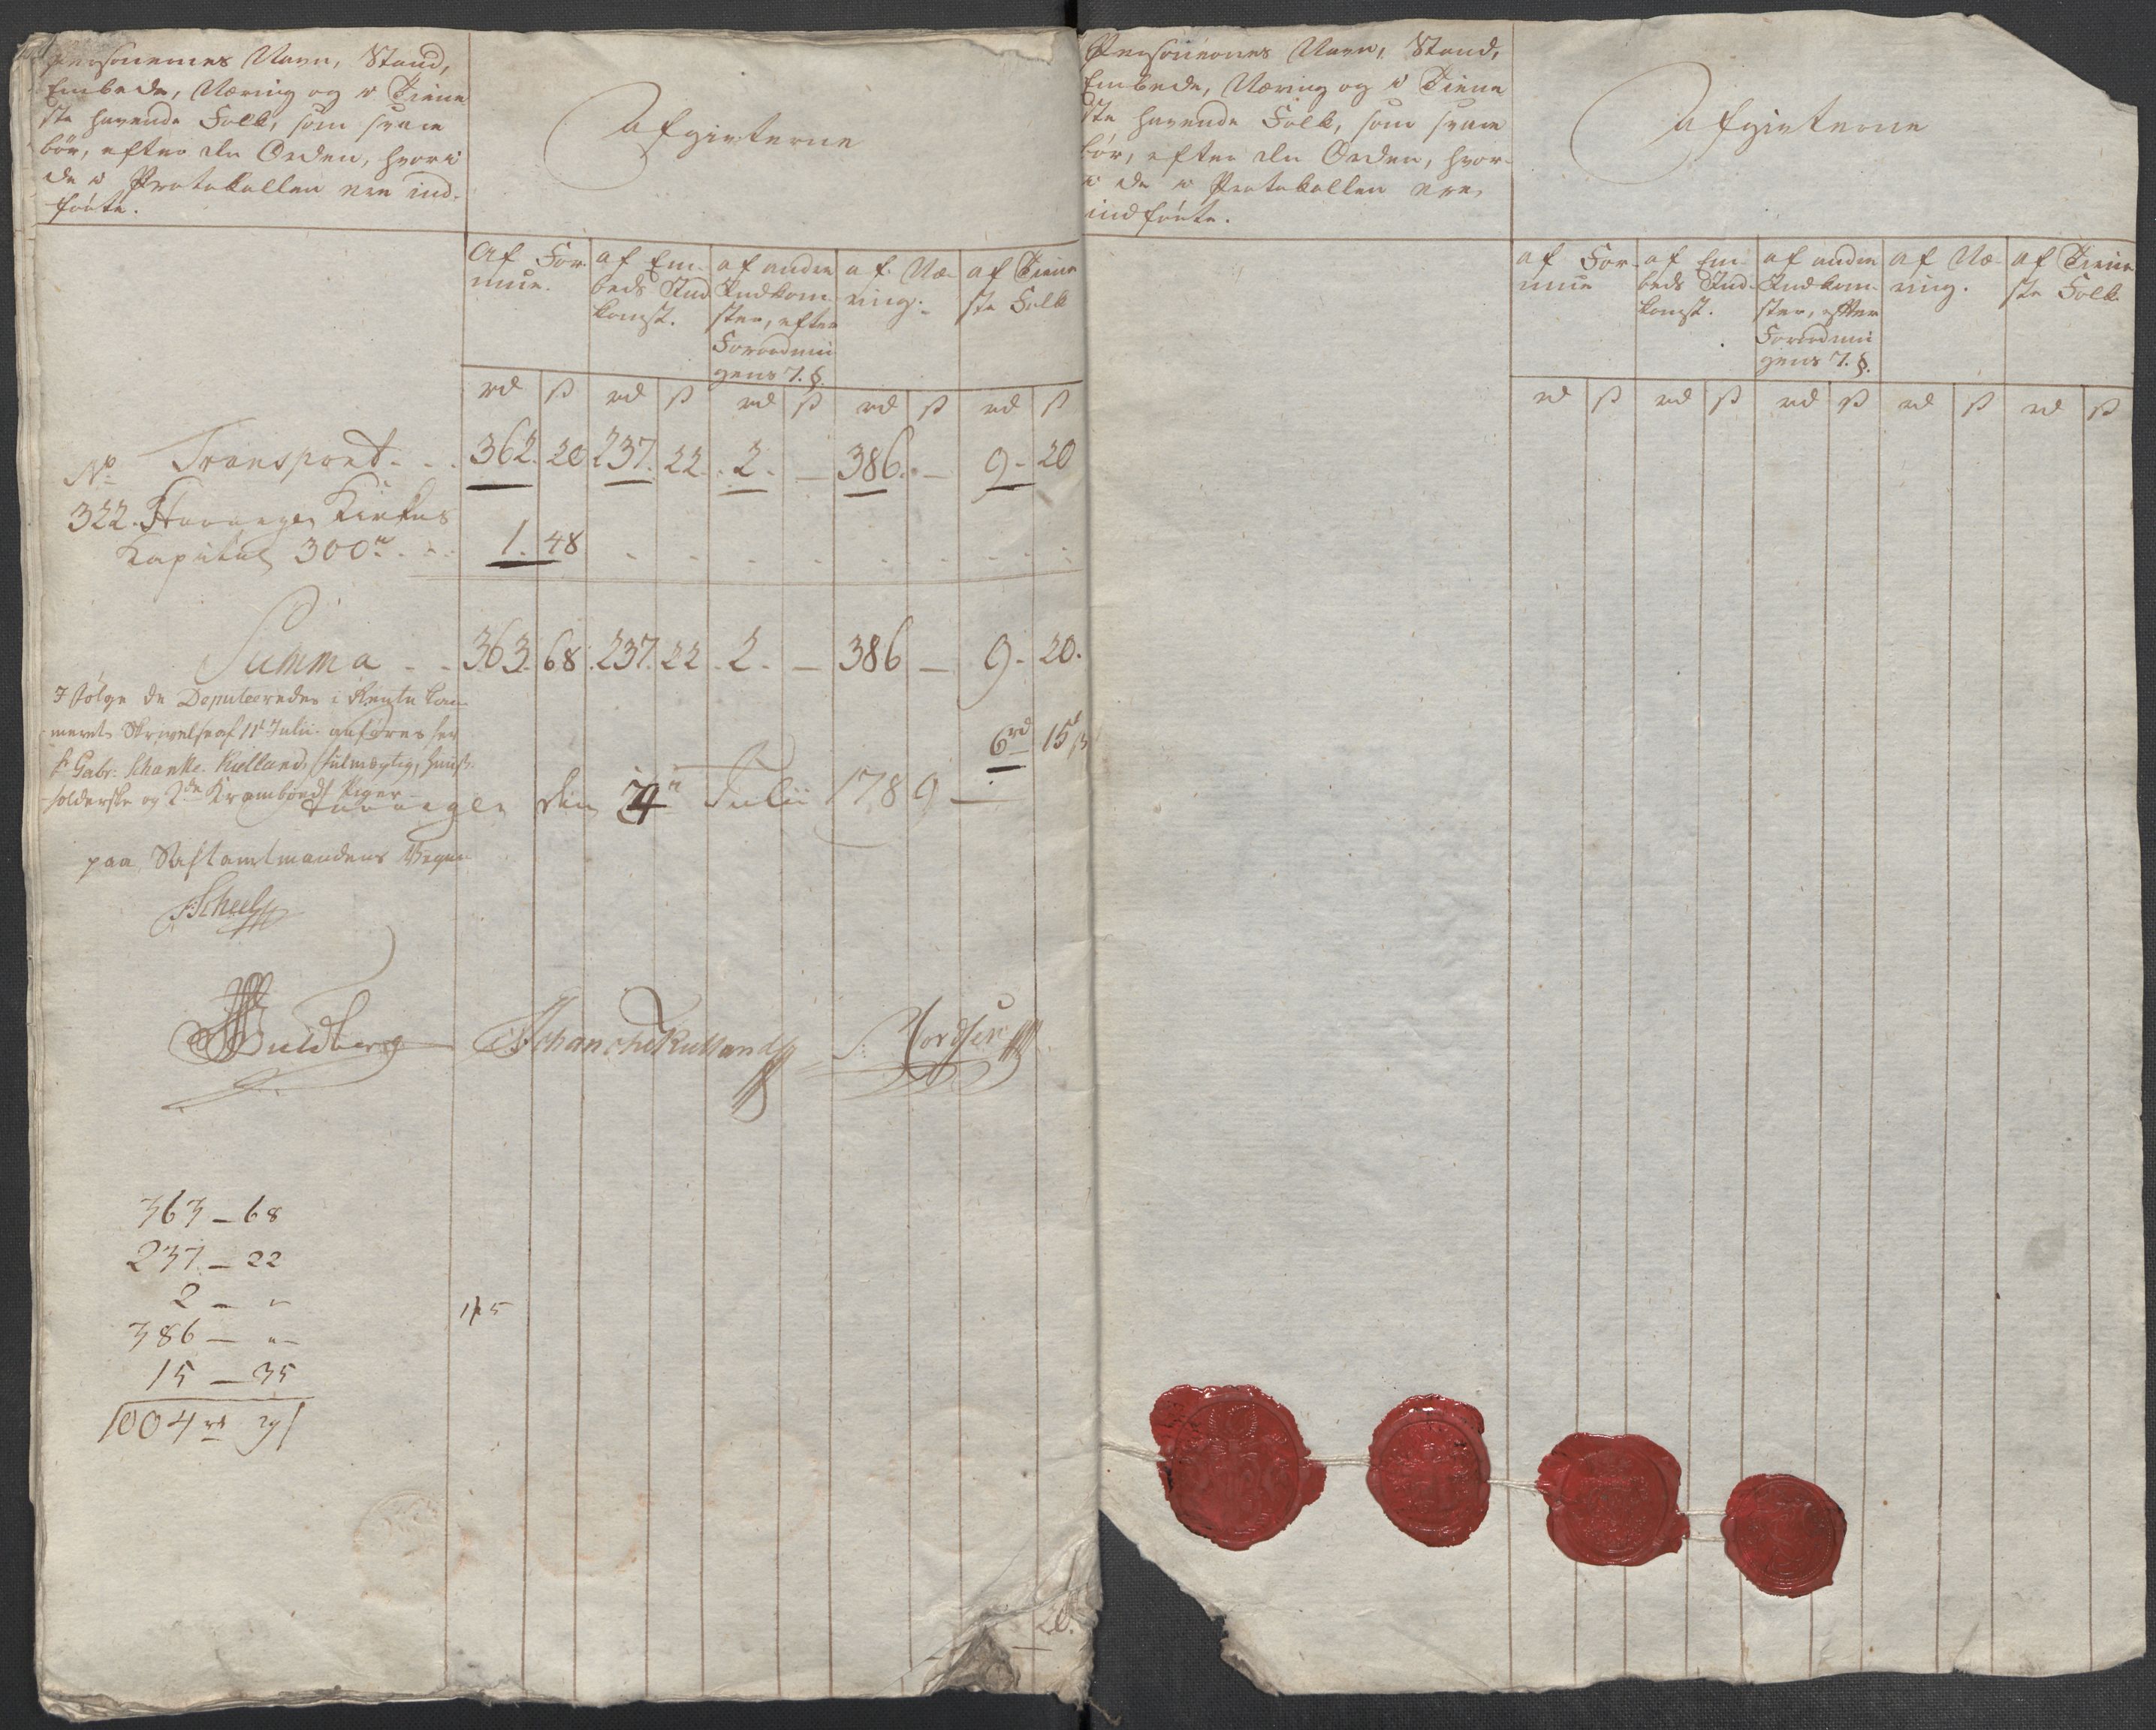 Personernes Navn, Stand,
Embede, Næring og i Tiene
ste havende Folk, som svare
bør, efter den Orden, hvori
de i Protokollen ere ind-
førte.
Afgivterne
Af For-
mue.
af Em-
beds Ind
komst.
af andre
Indkom-
ster, efter
Forordnin
gens 7. §.
af Næ-
ring.
af Tiene
ste Folk
rd ß rd ß rd ß rd ß rd ß
No Transport - - 362. 20 237. 22. 2. — 386. — 9 - 20
322. Stavanger Kirkes
Kapital 300rd - - 1. 48
Summa - - 363. 68. 237. 22. 2. — 386 — 9 - 20.
I følge de Deputeredes i Rente Kam-
merets Skrivelse af 11t Julii anføres her
Hr Gabr: Schanke Kielland, fulmægtig, huus-
holderske og 2de Krambods Piger 6rd 15ß
Stavanger den Julii 1789
paa Stiftamtmandens Vegne
Scheel
Buldberg
Schanche Kielland
363 - 68
237 - 22
2 - "
386 - "
15 - 35
1004rd 29
20.
Personernes Navn, Stand,
Embede, Næring og i Tiene
ste havende Folk, som svare
bør, efter den Orden, hvor-
i de i Protokollen ere
indførte.
Afgivterne
af For-
mue
af Em-
beds Ind-
komst.
af andre
Indkom-
ster, efter
Forordnin
gens 7. §.
af Næ-
ring.
af Tiene
ste Folk
rd ß rd ß rd ß rd ß rd ß